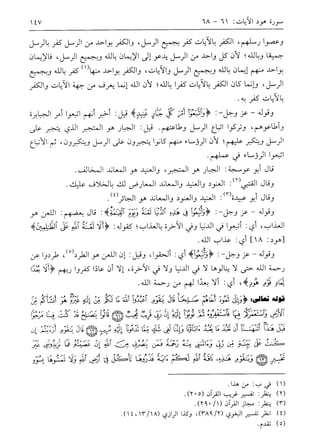 سورة هود الآيات: ٦١ - ٦٨ ١٤٧
وعصوا رسلهم، الكفر بالآيات كفر بجميع الرسل، والكفر بواحد من الرسل كفر بالرسل
جميعًا وبالله؛ لأن كل واحد من الرسل يدعو إلى الإيمان بالله وبجميع الرسل، فالإيمان
بواحد منهم إيمان بالله وبجميع الرسل والآيات، والكفر بواحد منها(١) كفر بالله وبجميع
الرسل، وإنما كان الكفر بالآيات كفرا بالله؛ لأن الله إنما يعرف من جهة الآيات والكفر
بالآيات كفر به.
وقوله - عز وجل -: ﴿وَاتَّبَعُوا أَمْرَ كُلِّ جَبَّارٍ عَنِيدٍ﴾ قيل: أخبر أنهم اتبعوا أمر الجبابرة
وأطاعوهم، وتركوا اتباع الرسل وطاعتهم. قيل: الجبار هو المتجبر الذي يتجبر على
الرسل ويتكبر عليهم؛ لأن الرؤساء منهم كانوا يتجبرون على الرسل ويتكبرون، ثم الأتباع
اتبعوا الرؤساء في عملهم.
قال أبو عوسجة: الجبار هو المتجبر، والعنيد هو المعاند المخالف.
قال القتبي(٢): العنود والعنيد والمعاند المعارض لك بالخلاف عليك.
قال أبو عبيدة(٣): العنيد والعنود والمعاند هو الجائر(٤).
وقوله - عز وجل -: ﴿وَأُتْبِعُوا فِي هَذِهِ الدُّنْيَا لَعْنَةً وَيَوْمَ الْقِيَامَةِ﴾: قال بعضهم: اللعن هو
العذاب، أي: أتبعوا في الدنيا وفي الآخرة بالعذاب؛ كقوله: ﴿أَلَا لَعْنَةُ اللَّهِ عَلَى الظَّالِمِينَ﴾
[هود: ١٨] أي: عذاب الله.
وقوله - عز وجل -: ﴿وَأُتْبِعُوا﴾ أي: ألحقوا، وقيل: إن اللعن هو الطرد(٥)، طردوا عن
رحمة الله حتى لا ينالوها لا في الدنيا ولا في الآخرة، إلا أن عادًا كفروا ربهم ﴿أَلَا بُعْدًا
لِعَادٍ قَوْمِ هُودٍ﴾، أي: ألا بعدا لهم من رحمة الله.
قوله تعالى: ﴿وَإِلَى ثَمُودَ أَخَاهُمْ صَالِحًا قَالَ يَا قَوْمِ اعْبُدُوا اللَّهَ مَا لَكُمْ مِنْ إِلَهٍ غَيْرُهُ هُوَ أَنْشَأَكُمْ مِنَ
الْأَرْضِ وَاسْتَعْمَرَكُمْ فِيهَا فَاسْتَغْفِرُوهُ ثُمَّ تُوبُوا إِلَيْهِ إِنَّ رَبِّي قَرِيبٌ مُجِيبٌ ﴿٦١﴾ قَالُوا يَا صَالِحُ قَدْ كُنْتَ فِينَا مَرْجُوًّا
قَبْلَ هَذَا أَتَنْهَانَا أَنْ نَعْبُدَ مَا يَعْبُدُ آبَاؤُنَا وَإِنَّنَا لَفِي شَكٍّ مِمَّا تَدْعُونَا إِلَيْهِ مُرِيبٍ ﴿٦٢﴾ قَالَ يَا قَوْمِ أَرَأَيْتُمْ إِنْ
كُنْتُ عَلَى بَيِّنَةٍ مِنْ رَبِّي وَآتَانِي مِنْهُ رَحْمَةً فَمَنْ يَنْصُرُنِي مِنَ اللَّهِ إِنْ عَصَيْتُهُ فَمَا تَزِيدُونَنِي غَيْرَ
تَخْسِيرٍ ﴿٦٣﴾ وَيَا قَوْمِ هَذِهِ نَاقَةُ اللَّهِ لَكُمْ آيَةً فَذَرُوهَا تَأْكُلْ فِي أَرْضِ اللَّهِ وَلَا تَمَسُّوهَا بِسُوءٍ
(١) في ب: من هذا.
(٢) ينظر: تفسير غريب القرآن (٢٠٥).
(٣) ينظر: مجاز القرآن (٢٩٠/١).
(٤) انظر تفسير البغوي (٣٨٩/٢)، وكذا الرازي (١٣/١٨، ١٤).
(٥) تقدم.